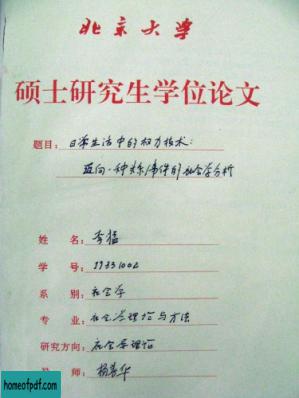 北京大学
硕士研究生学位论文
题目：日常生活中的权力技术：
迈向一种关系/事件的社会学分析
姓名：李猛
学号：19331002
系别：社会学
专业：社会学理论与方法
研究方向：社会学理论
导师：杨善华
homeofpdf.com
homeofpdf.com